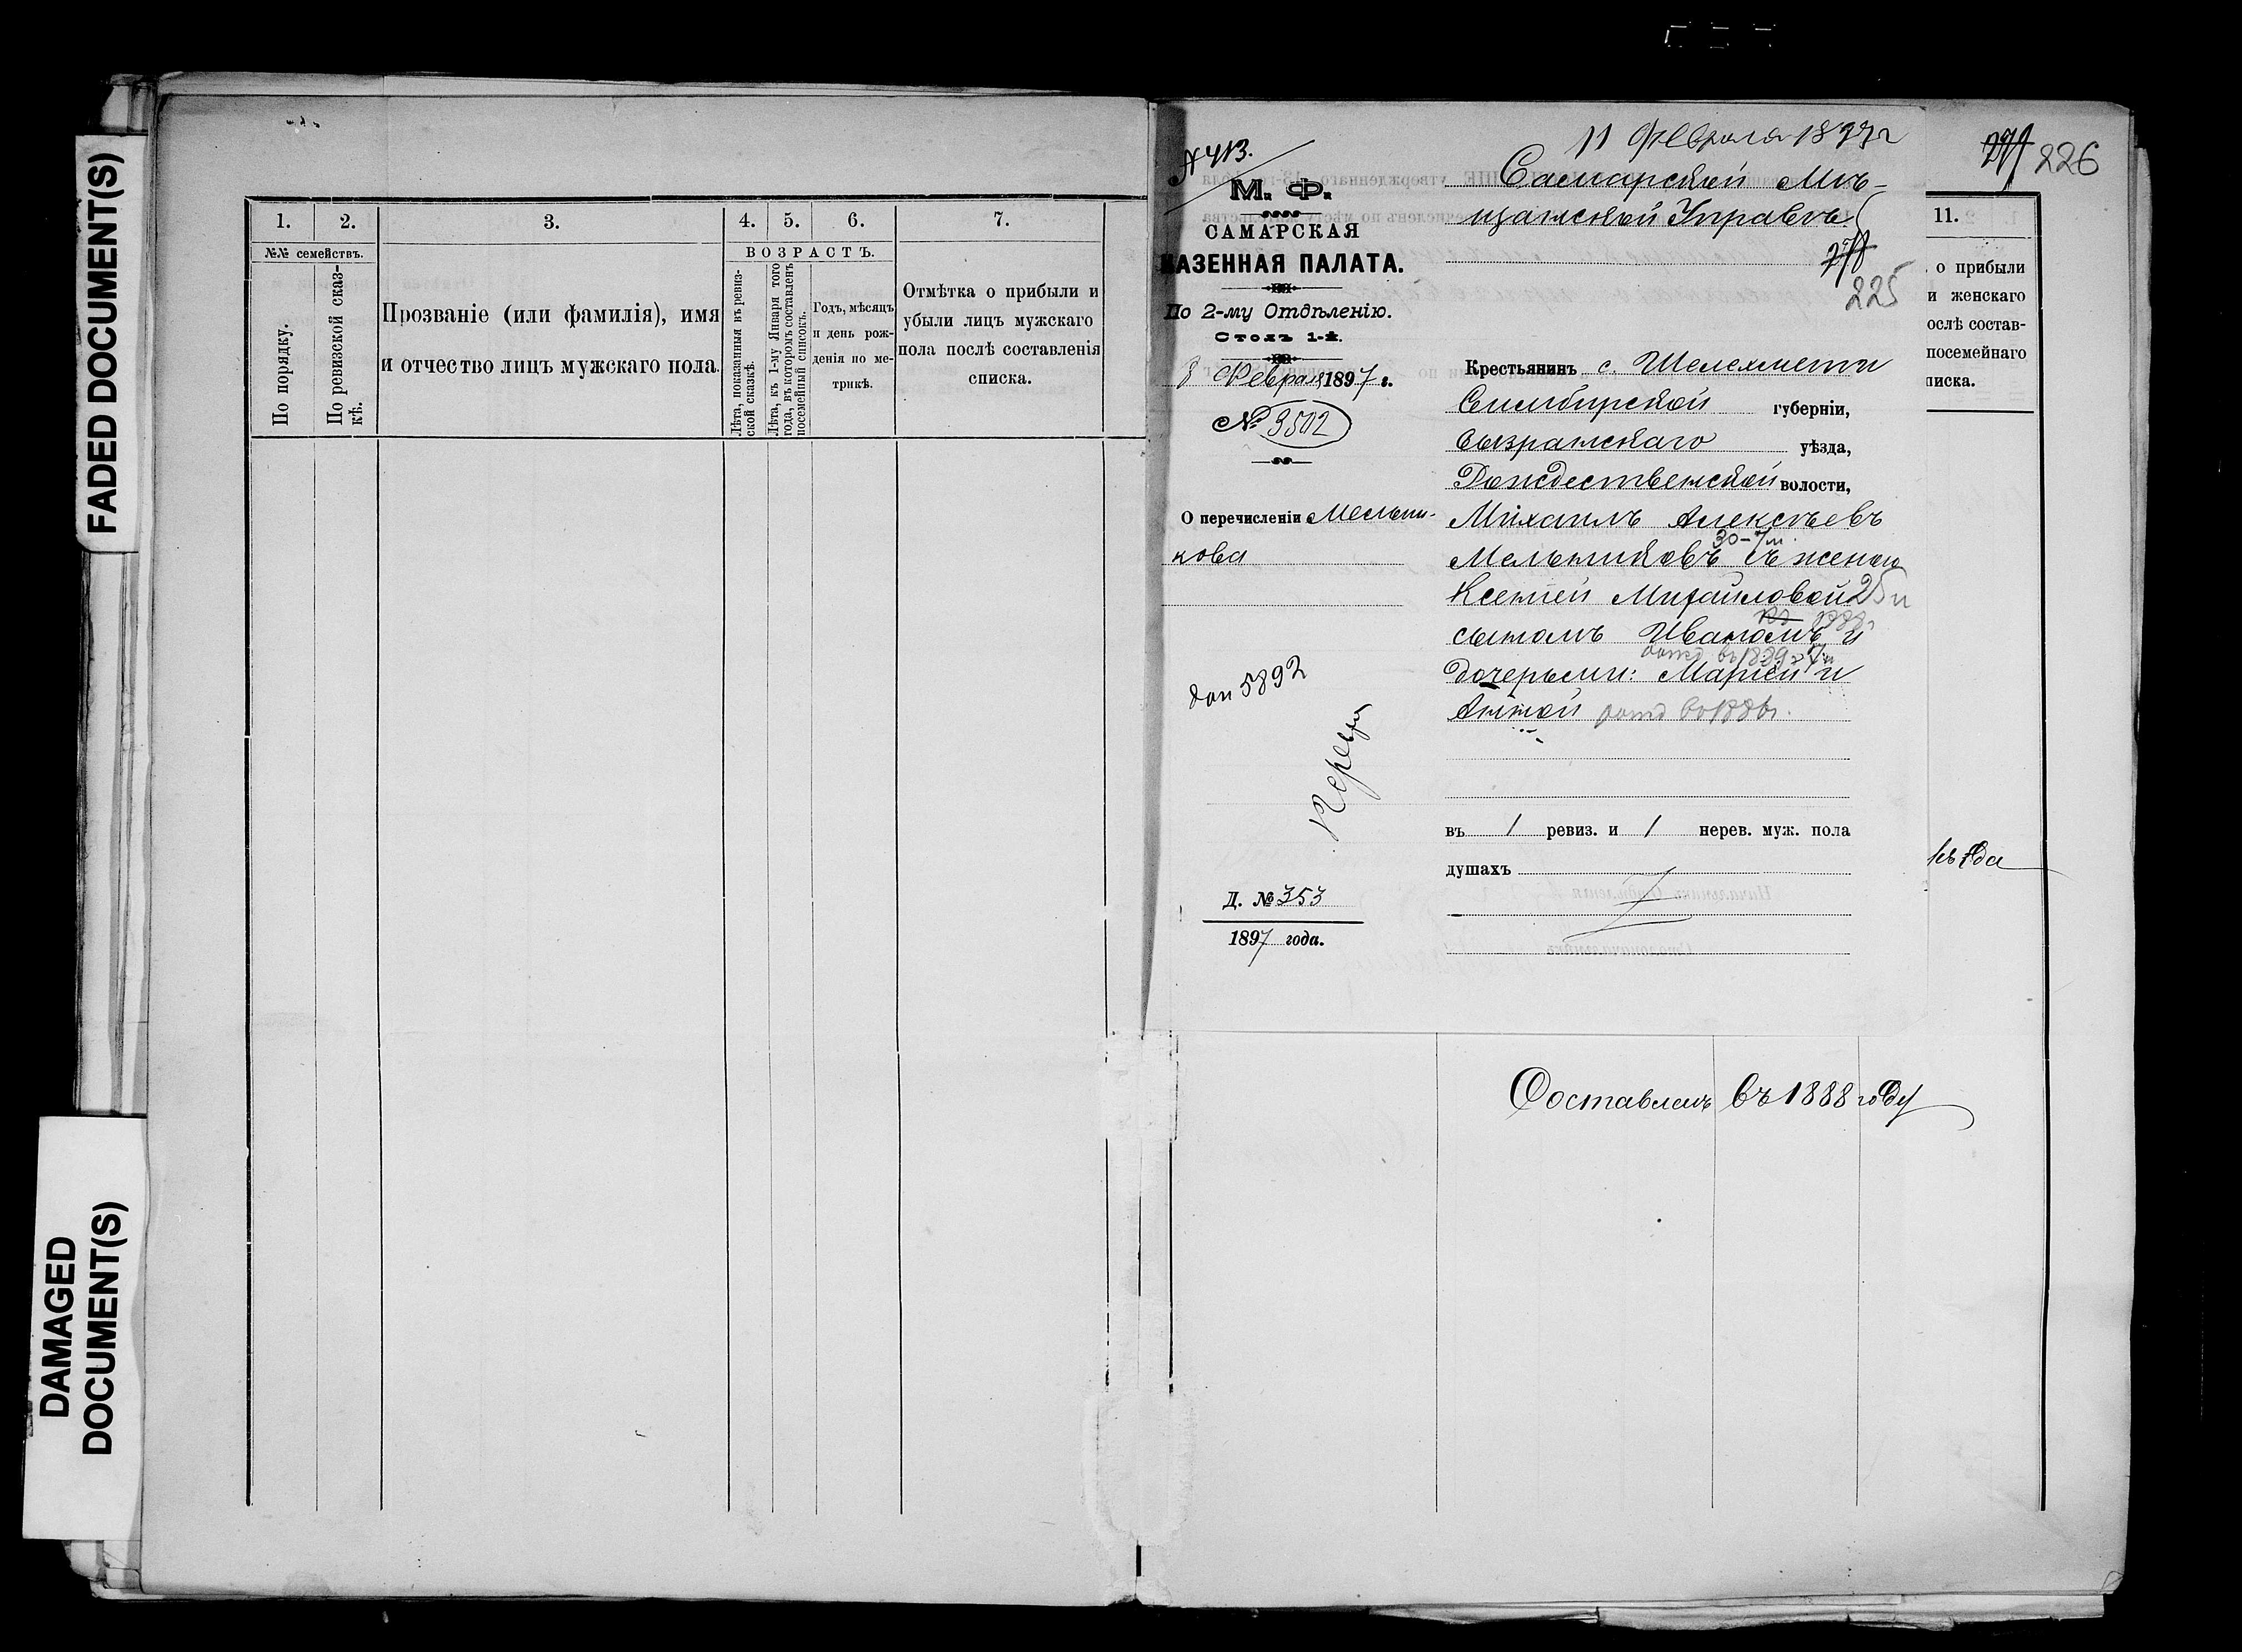 FADED DOCUMENT(S)
DAMAGED
DOCUMENT(S)
1.
2.
3.
4.
5.
6.
7.
№№ семействъ.
По порядку.
По ревизской сказ-
кѣ.
Прозваніе (или фамилія), имя
и отчество лицъ мужскаго пола.
ВОЗРАСТЪ.
Лѣта, показанныя въ ревиз-
ской сказкѣ.
Лѣта, къ 1-му Января того
года, въ которомъ составленъ
посемейный списокъ.
Годъ, мѣсяцъ
и день рож-
денія по ме-
трикѣ.
Отмѣтка о прибыли и
убыли лицъ мужскаго
пола послѣ составленія
списка.
№ 413.
М. Ф.
САМАРСКАЯ
КАЗЕННАЯ ПАЛАТА.
По 2-му Отдѣленію.
Столъ 1-й.
8 Февраля 1897 г.
№ 3502
О перечисленіи Мельни-
кова
5892
Д. № 353
1897 года.
11 Февраля 1897 г
Самарской Мѣ-
щанской Управѣ
225
Крестьянинъ с. Шелехмети
Симбирской губерніи,
Сызранскаго уѣзда,
Рождественской волости,
Михаилъ Алексѣевъ
30-7м.
Мельниковъ съ женою
Ксеніей Михайловой 25 и
1888г
сыномъ Иваномъ и
рожд въ 1889 г
дочерьми: Маріей и
Анной рожд въ 1886г.
въ 1 ревиз. и 1 нерев. муж. пола
душахъ
226
11.
о прибыли
и женскаго
ослѣ состав-
посемейнаго
писка.
Составленъ въ 1888 году